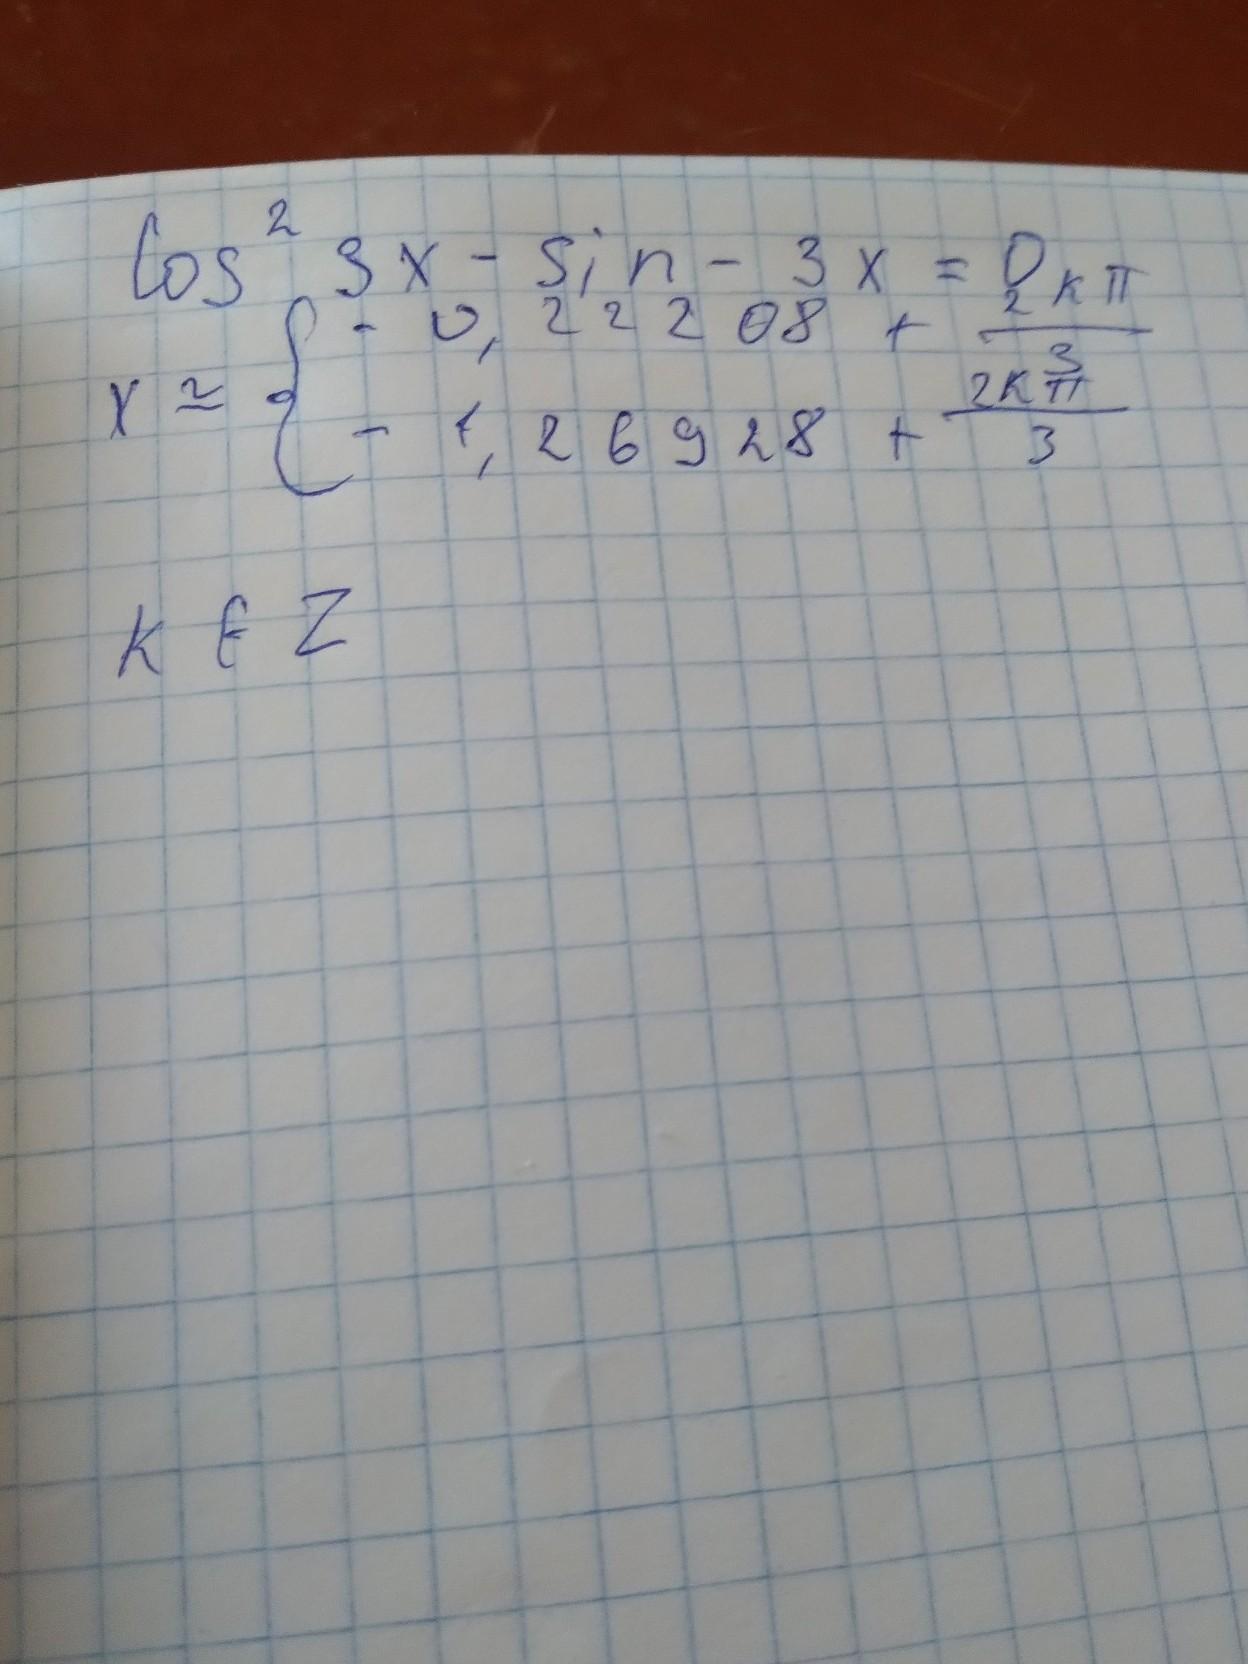 cos² 3x - sin - 3x = 0
x ≃ { - 0,22208 + 2kπ/3
- 1,26928 + 2kπ/3
k ∈ Z